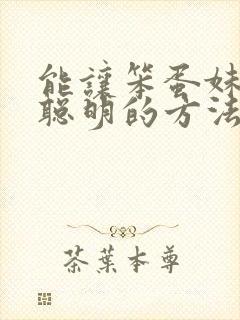 能讓笨蛋妹
聰明的方法
茶葉本尊